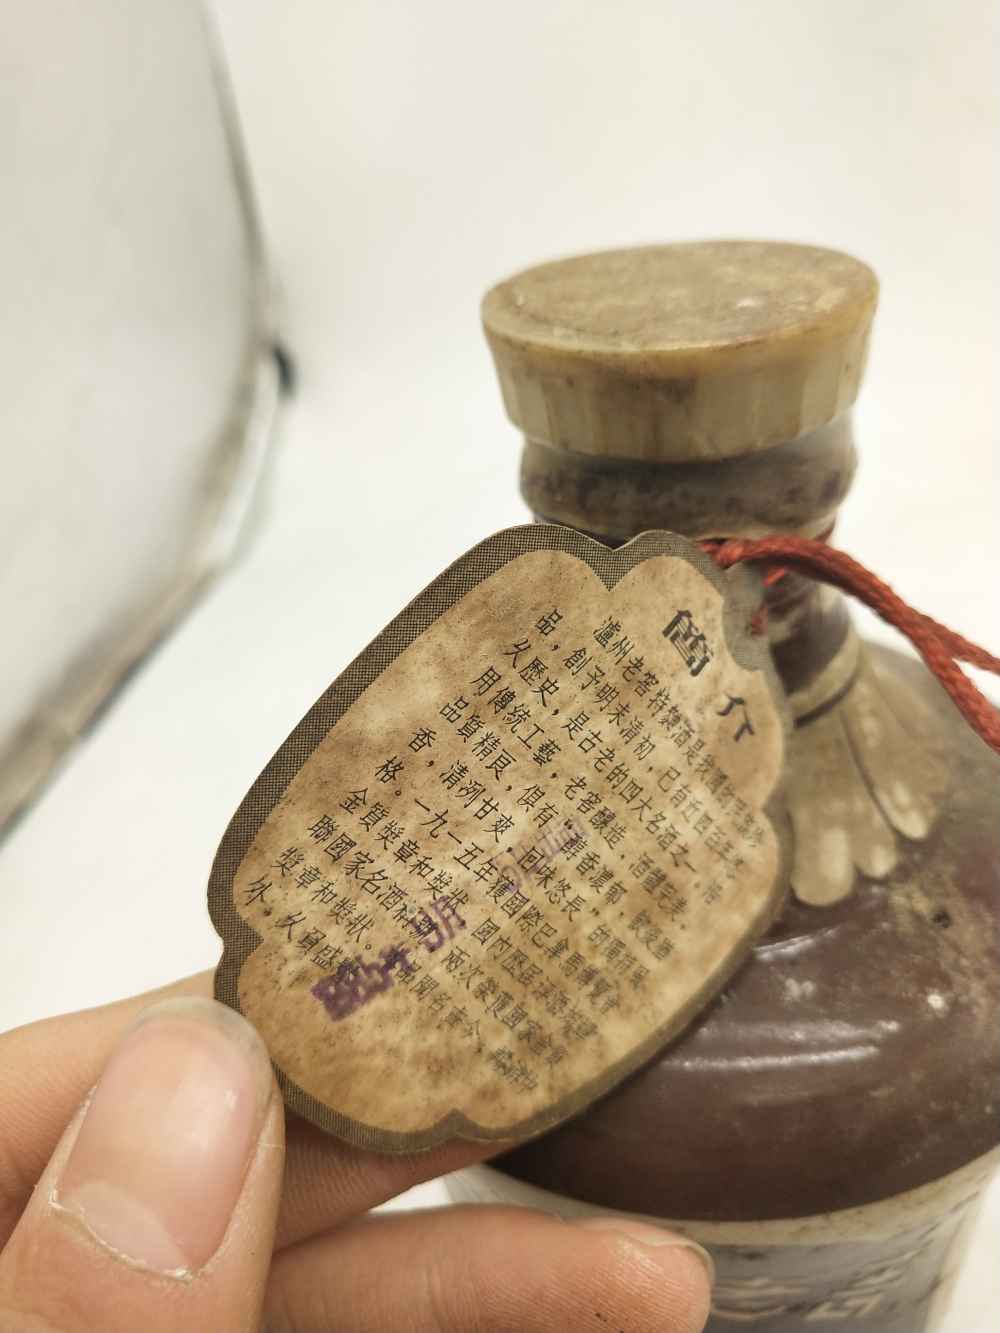 簡 介
瀘州老窖特麴酒是我國
品，創予明末清初，已有近四百年悠
久歷史，是古老的四大名酒之一。沿
用傳統工藝，老窖釀造，酒體完美，
品質精良，俱有“醇香濃郁，飲後
香，清洌甘爽，回味悠長”的獨特風
格。一九一五年獲國際巴拿馬博覽會
金質獎章和獎狀，國內歷屆評酒均
聯國家名酒稱號，兩次榮獲國家金質
獎章和獎狀。聞名
外，久負盛